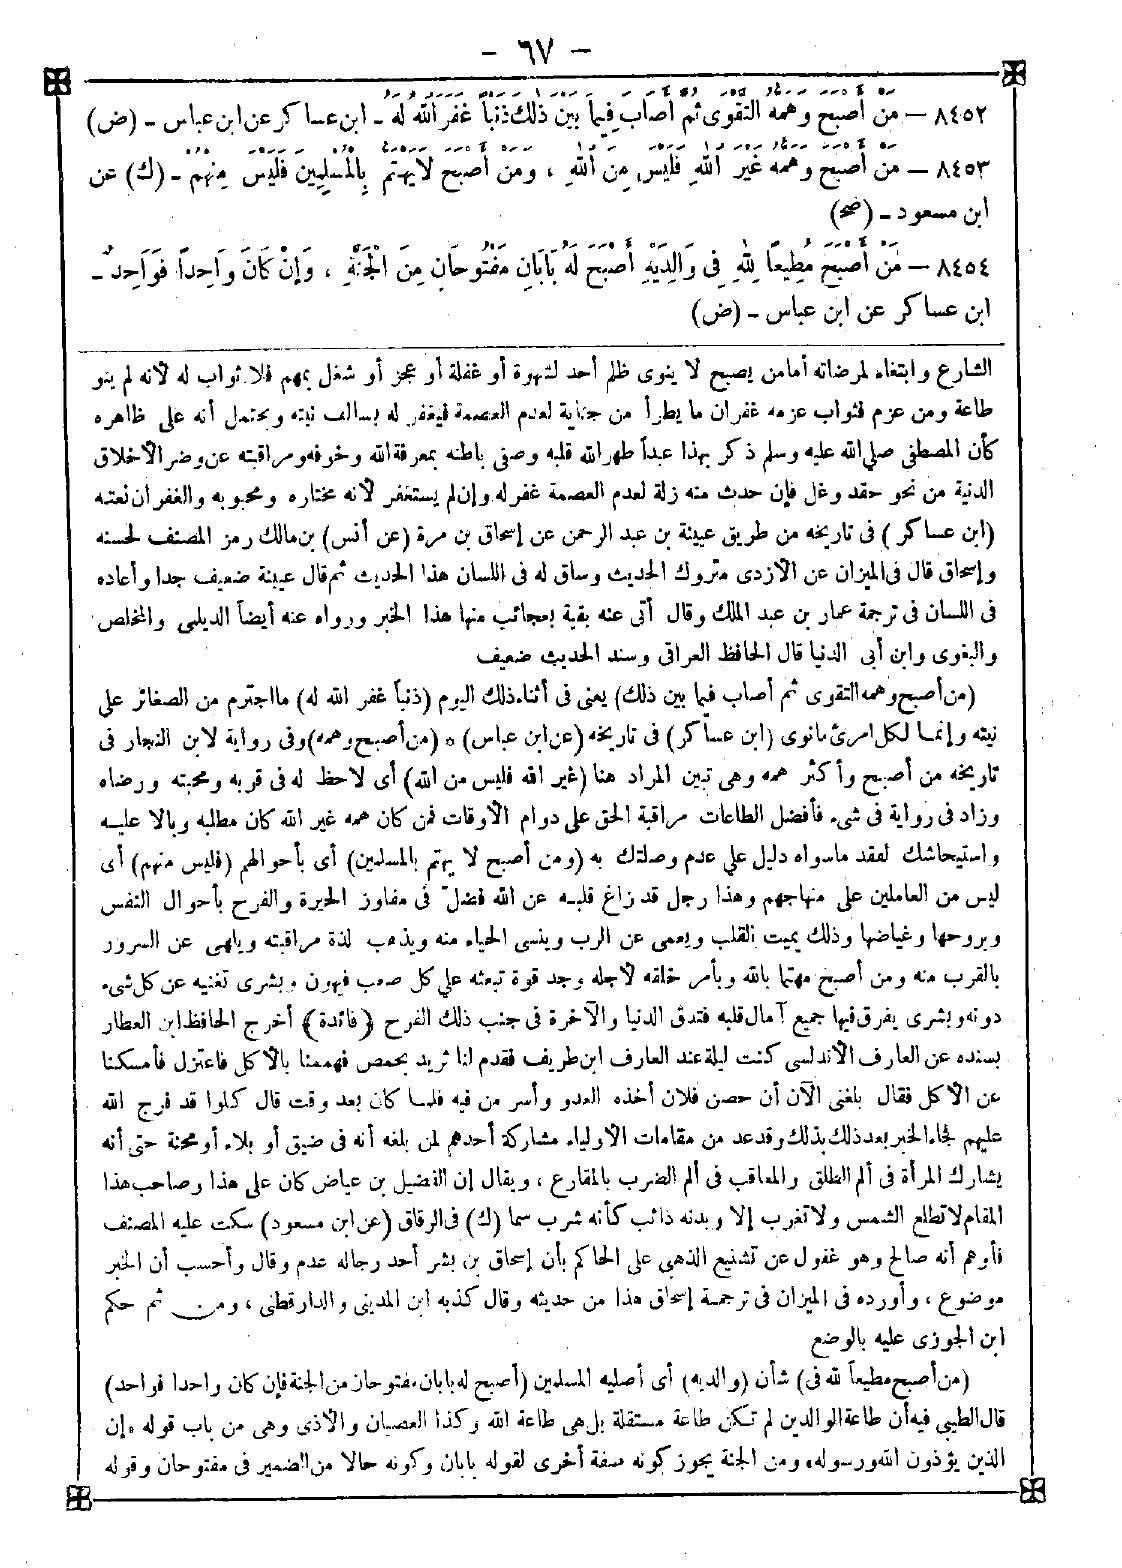 - ٦٧ -
٨٤٥٢ - مَنْ أَصْبَحَ وَهَمُّهُ التَّقْوَى ثُمَّ أَصَابَ فِيمَا بَيْنَ ذَلِكَ ذَنْباً غَفَرَ اللهُ لَهُ - ابن عساكر عن ابن عباس - (ض)
٨٤٥٣ - مَنْ أَصْبَحَ وَهَمُّهُ غَيْرُ اللهِ فَلَيْسَ مِنَ اللهِ ، وَمَنْ أَصْبَحَ لَا يَهْتَمُّ بِالْمُسْلِمِينَ فَلَيْسَ مِنْهُمْ - (ك) عن
ابن مسعود - (صح)
٨٤٥٤ - مَنْ أَصْبَحَ مُطِيعاً لِلهِ فِى وَالِدَيْهِ أَصْبَحَ لَهُ بَابَانِ مَفْتُوحَانِ مِنَ الْجَنَّةِ ، وَإِنْ كَانَ وَاحِداً فَوَاحِدٌ -
ابن عساكر عن ابن عباس - (ض)
الشارع وابتغاء لمرضاته أما من يصبح لا ينوى ظلم أحد لشهوة أو غفلة أو عجز أو شغل بمهم فلا ثواب له لأنه لم ينو
طاعة ومن عزم فثواب عزمه غفران ما يطرأ من جناية لعدم العصمة فيغفر له بسالف نيته ويحتمل أنه على ظاهره
كأن المصطفى صلى الله عليه وسلم ذكر بهذا عبداً طهر الله قلبه وصفى باطنه بمعرفة الله وخوفه ومراقبته عن وضر الأخلاق
الدنية من نحو حقد وغل فإن حدث منه زلة لعدم العصمة غفر له وإن لم يستغفر لأنه مختاره ومحبوبه والغفر أن نعته
(ابن عساكر) فى تاريخه من طريق عيينة بن عبد الرحمن عن إسحاق بن مرة (عن أنس) بن مالك رمز المصنف لحسنه
وإسحاق قال فى الميزان عن الأزدى متروك الحديث وساق له فى اللسان هذا الحديث ثم قال عيينة ضعيف جدا وأعاده
فى اللسان فى ترجمة عمار بن عبد الملك وقال أتى عنه بقية بعجائب منها هذا الخبر ورواه عنه أيضاً الديلمى والمخلص
والبغوى وابن أبى الدنيا قال الحافظ العراقى وسند الحديث ضعيف
(من أصبح وهمه التقوى ثم أصاب فيما بين ذلك) يعنى فى أثناء ذلك اليوم (ذنباً غفر الله له) ما اجترم من الصغائر على
نيته وإنما لكل امرئ ما نوى (ابن عساكر) فى تاريخه (عن ابن عباس) * (من أصبح وهمه) وفى رواية لابن النجار فى
تاريخه من أصبح وأكثر همه وهى تبين المراد هنا (غير الله فليس من الله) أى لاحظ له فى قربه ومحبته ورضاه
وزاد فى رواية فى شىء فأفضل الطاعات مراقبة الحق على دوام الأوقات فمن كان همه غير الله كان مطلبه وبالا عليه
واستيحاشك لفقد ماسواه دليل على عدم وصلتك به (ومن أصبح لا يهتم بالمسلمين) أى بأحوالهم (فليس منهم) أى
ليس من العاملين على منهاجهم وهذا رجل قد زاغ قلبه عن الله فضلّ فى مفاوز الحيرة والفرح بأحوال النفس
وبروحها وغياضها وذلك يميت القلب ويعمى عن الرب وينسى الحياء منه ويذهب لذة مراقبته ويلهى عن السرور
بالقرب منه ومن أصبح مهتما بالله وبأمر خلقه لأجله وجد قوة تبعثه على كل صعب فيهون وبشرى تغنيه عن كل شىء
دونه وبشرى يفرق فيها جميع آمال قلبه فتدق الدنيا والآخرة فى جنب ذلك الفرح (فائدة) أخرج الحافظ ابن العطار
بسنده عن العارف الأندلسى كنت ليلة عند العارف ابن طريف فقدم لنا ثريد بحمص فهممنا بالأكل فاعتزل فأمسكنا
عن الأكل فقال بلغنى الآن أن حصن فلان أخذه العدو وأسر من فيه فلما كان بعد وقت قال كلوا قد فرج الله
عليهم فجاء الخبر بعد ذلك بذلك وقد عد من مقامات الأولياء مشاركة أحدهم لمن بلغه أنه فى ضيق أو بلاء أو محنة حتى أنه
يشارك المرأة فى ألم الطلق والمعاقب فى ألم الضرب بالمقارع ، ويقال إن الفضيل بن عياض كان على هذا وصاحب هذا
المقام لا تطلع الشمس ولا تغرب إلا وبدنه ذائب كأنه شرب سما (ك) فى الرقاق (عن ابن مسعود) سكت عليه المصنف
فأوهم أنه صالح وهو غفول عن تشنيع الذهبى على الحاكم بأن إسحاق بن بشر أحد رجاله عدم وقال وأحسب أن الخبر
موضوع ، وأورده فى الميزان فى ترجمة إسحاق هذا من حديثه وقال كذبه ابن المدينى والدارقطنى ، ومن ثم حكم
ابن الجوزى عليه بالوضع
(من أصبح مطيعاً لله فى) شأن (والديه) أى أصليه المسلمين (أصبح له بابان مفتوحان من الجنة فإن كان واحدا فواحد)
قال الطيبى فيه أن طاعة الوالدين لم تكن طاعة مستقلة بل هى طاعة الله وكذا العصيان والأذى وهى من باب قوله «إن
الذين يؤذون الله ورسوله» ومن الجنة يجوز كونه صفة أخرى لقوله بابان وكونه حالا من الضمير فى مفتوحان وقوله